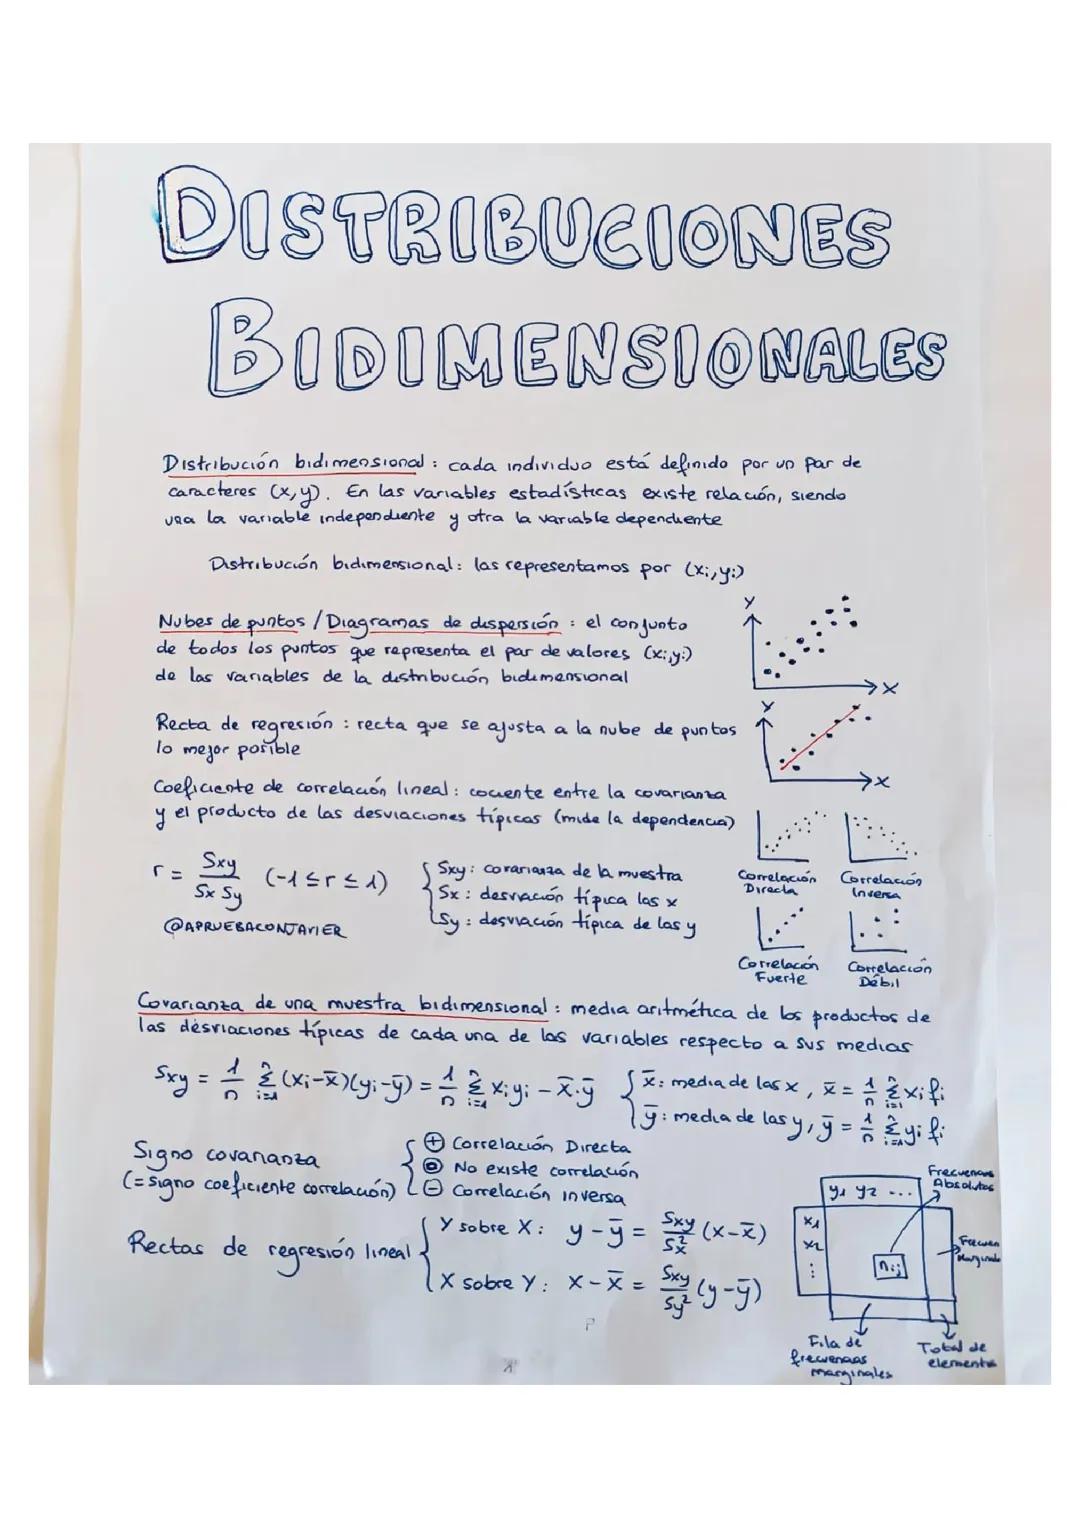 DISTRIBUCIONES
BIDIMENSIONALES
Distribución bidimensional: cada individuo está definido por un par de
caracteres (x,y). En las variables estadísticas existe relación, siendo
una la variable independiente y otra la variable dependiente
Distribución bidimensional: las representamos por (xi,yi)
Nubes de puntos / Diagramas de dispersión: el conjunto
de todos los puntos que representa el par de valores (xi,yi)
de las variables de la distribución bidimensional
y
x
Recta de regresión: recta que se ajusta a la nube de puntos
lo mejor posible
y
x
Coeficiente de correlación lineal: cociente entre la covarianza
y el producto de las desviaciones típicas (mide la dependencia)
r = Sxy / Sx Sy (-1 ≤ r ≤ 1)
Sxy: covarianza de la muestra
Sx: desviación típica las x
Sy: desviación típica de las y
@APRUEBACONJAVIER
Correlación Directa
Correlación Inversa
Correlación Fuerte
Correlación Débil
Covarianza de una muestra bidimensional: media aritmética de los productos de
las desviaciones típicas de cada una de las variables respecto a sus medias
Sxy = 1/n Σ(i=1, n) (xi-x̄)(yi-ȳ) = 1/n Σ(i=1, n) xi yi - x̄·ȳ
x̄: media de las x, x̄ = 1/n Σ(i=1, n) xi fi
ȳ: media de las y, ȳ = 1/n Σ(i=1, n) yi fi
Signo covarianza
(= signo coeficiente correlación)
⊕ Correlación Directa
⓪ No existe correlación
⊖ Correlación inversa
Rectas de regresión lineal
Y sobre X: y-ȳ = Sxy/Sx² (x-x̄)
X sobre Y: x-x̄ = Sxy/Sy² (y-ȳ)
y1 y2 ...
x1
x2
⋮
nij
Frecuencias
Absolutas
Fila de
frecuencias
marginales
Total de